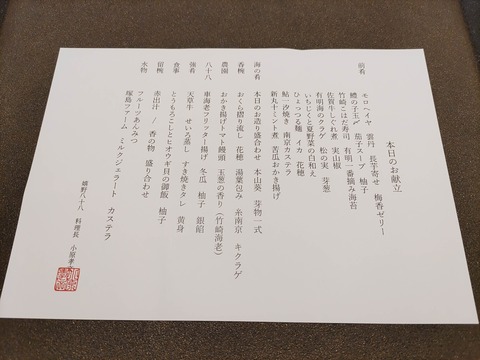 本日のお献立
前肴
モロヘイヤ 雲丹 長芋寄せ 梅香ゼリー
鱧の子玉〆 茄子スープ 柚子
竹崎こはだ寿司 有明一番摘み海苔
佐賀牛しぐれ煮 実山椒
有明海のクラゲ 松の実 芽葱
いちじくと夏野菜の白和え
ひょっつる麺 イカ 花穂
鮎一汐焼き 南京カステラ
新丸十ミント煮 苦瓜おかき揚げ
海の肴
本日のお造り盛合わせ 本山葵 芽物一式
香椀
おくら摺り流し 花穂 湯葉包み 糸南京 キクラゲ
農園
おかき揚げトマト饅頭 玉葱の香り(竹崎海老)
八十八
車海老フリッター揚げ 冬瓜 柚子 銀餡
強肴
天草牛 せいろ蒸し すき焼きタレ 黄身
食事
とうもろこしとヒオウギ貝の御飯 柚子
留椀
赤出汁 / 香の物 盛り合わせ
水物
フルーツあんみつ
塚島ファーム ミルクジェラート カステラ
嬉野八十八 料理長 小原孝